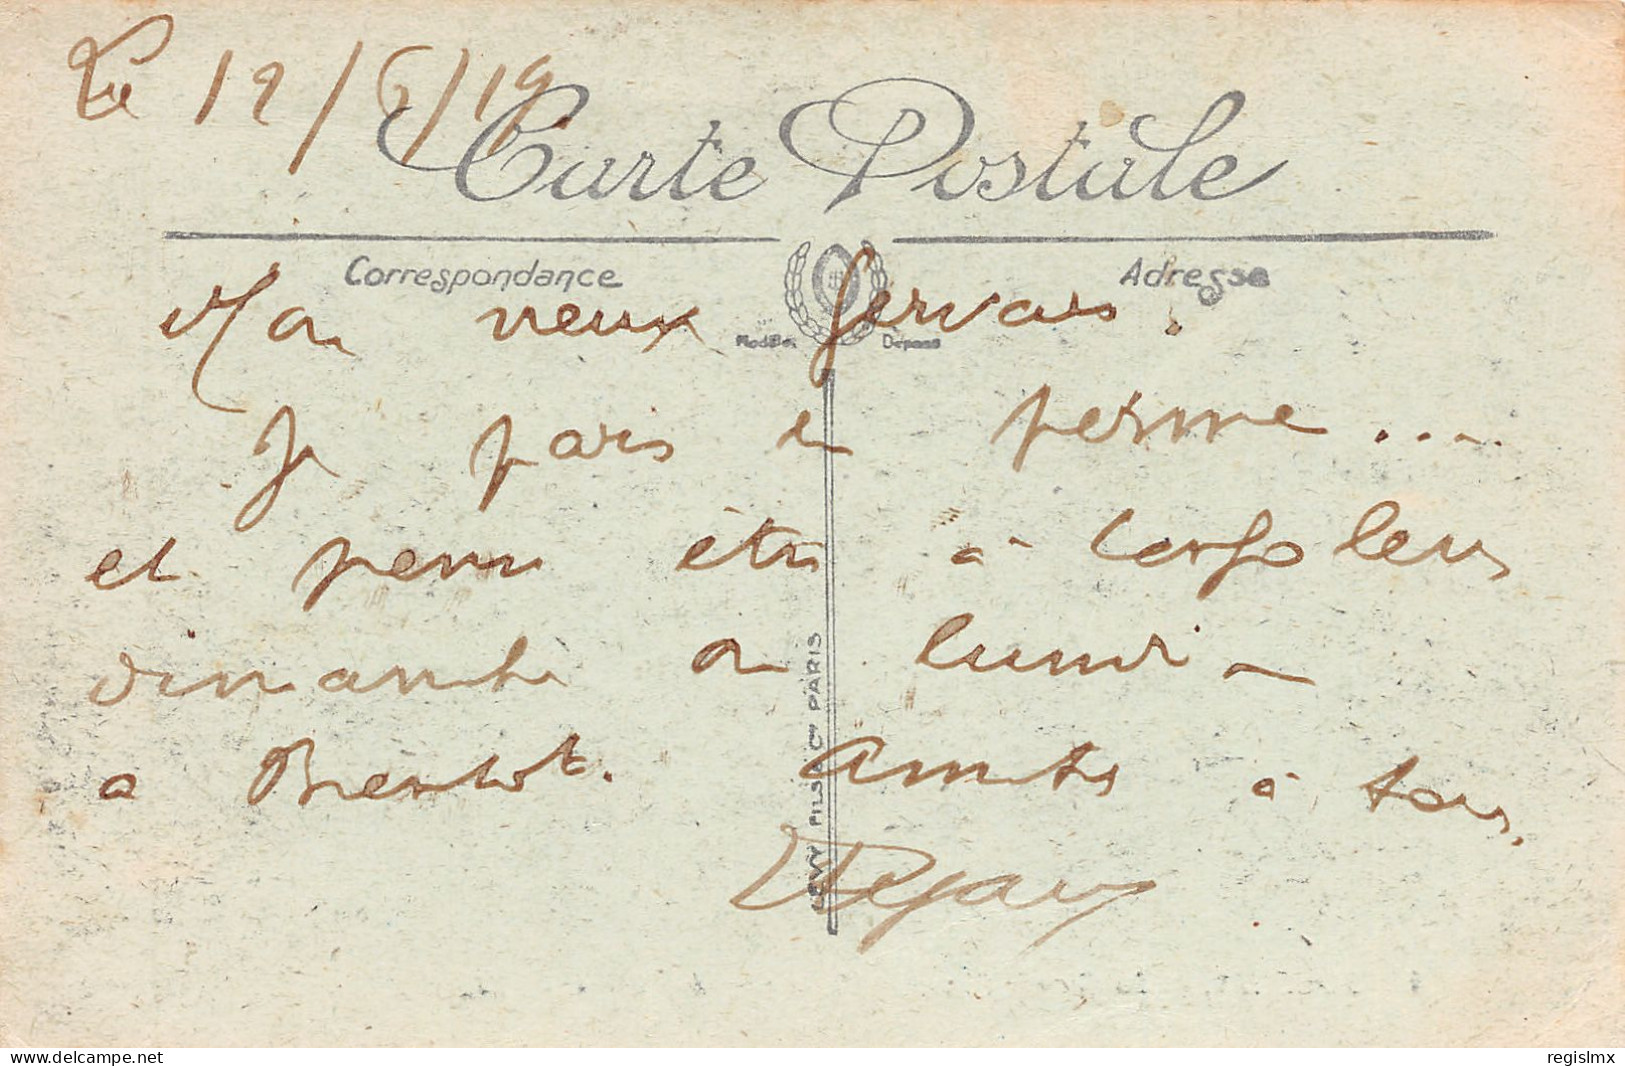 Le 19/6/19
Carte Postale
Correspondance
Adresse
Modèle Déposé
Mon vieux Gervais.
Je pars en perme....
et pense être à
dimanche ou lundi -
a Amitiés à tous.
LEVY FILS & Cie PARIS
delcampe.net
regislmx